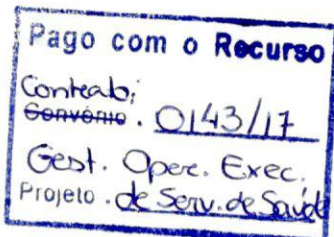 Pago com o Recurso
Contrato:
Convênio . 0143/17
Gest. Oper. Exec.
Projeto . de Serv. de Saúde